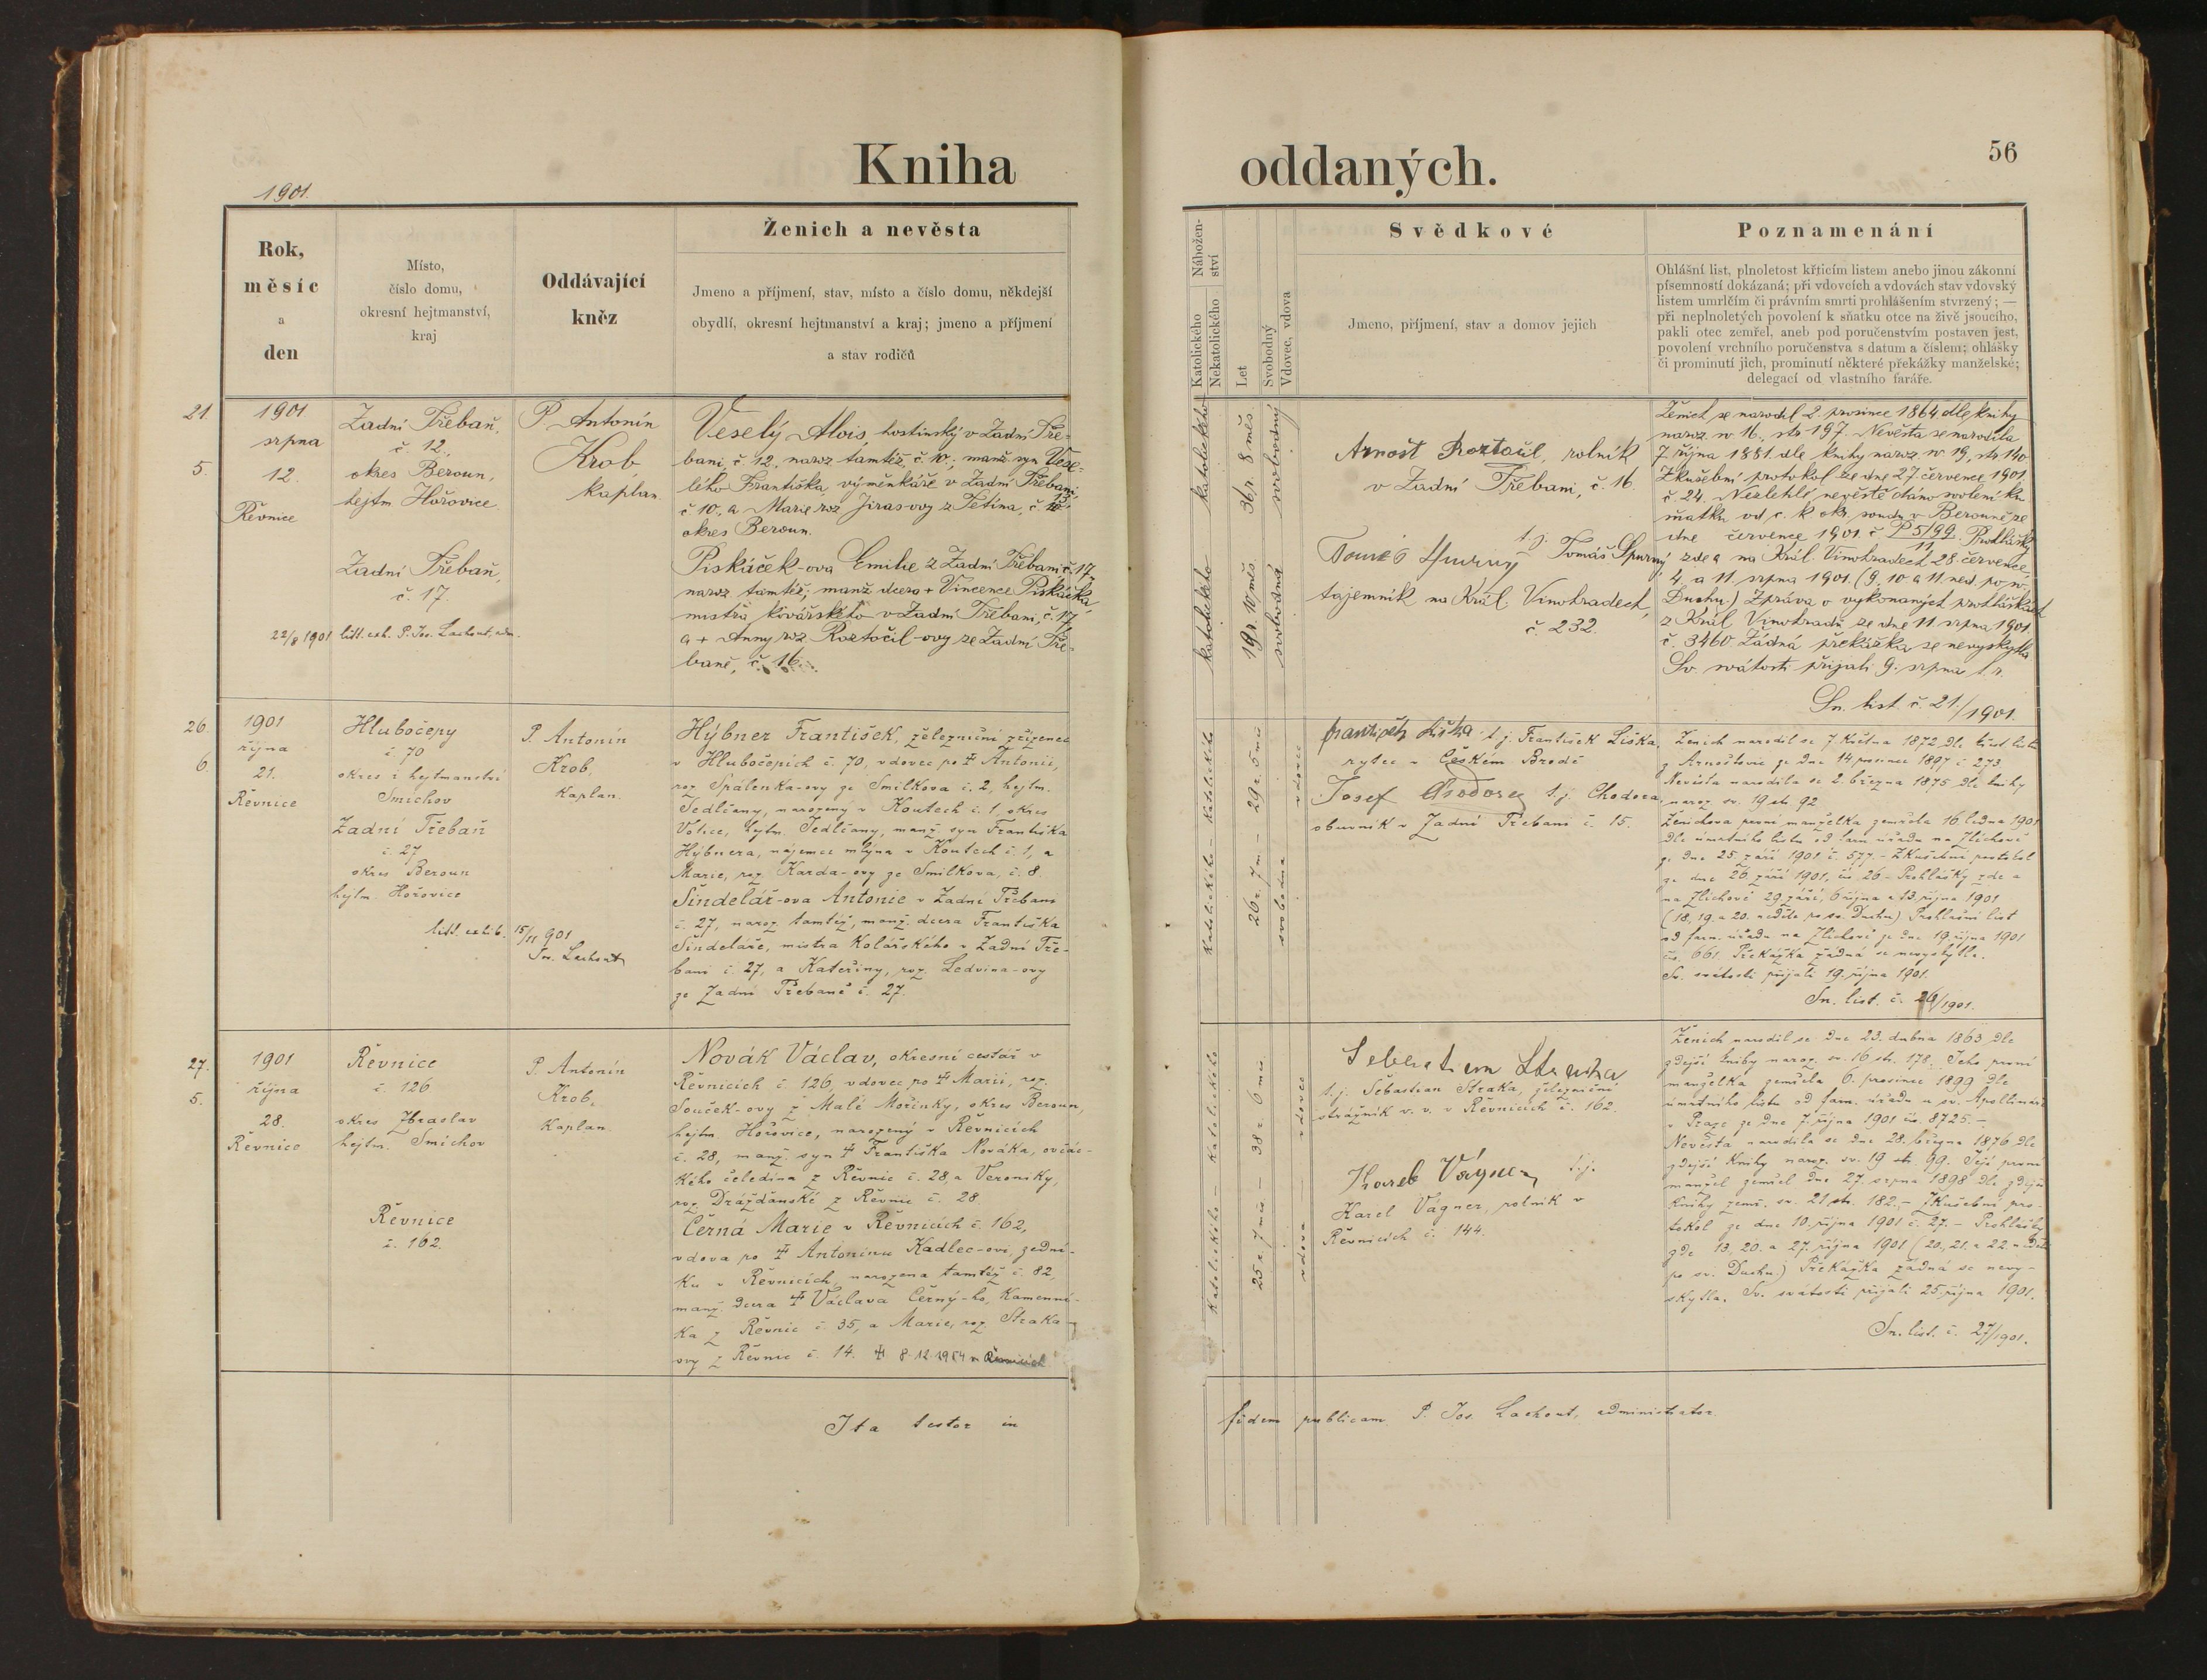 Kniha
oddaných.
56
1901.
Rok,
měsíc
a
den
Místo,
číslo domu,
okresní hejtmanství,
kraj
Oddávající
kněz
Ženich a nevěsta
Jmeno a příjmení, stav, místo a číslo domu, někdejší
obydlí, okresní hejtmanství a kraj; jmeno a příjmení
a stav rodičů
Nábožen-
ství
Katolického
Nekatolického
Let
Svobodný
Vdovec, vdova
Svědkové
Jmeno, příjmení, stav a domov jejich
Poznamenání
Ohlášní list, plnoletost křticím listem anebo jinou zákonní
písemností dokázaná; při vdovcích a vdovách stav vdovský
listem umrlčím či právním smrti prohlášením stvrzený; —
při neplnoletých povolení k sňatku otce na živě jsoucího,
pakli otec zemřel, aneb pod poručenstvím postaven jest,
povolení vrchního poručenstva s datum a číslem; ohlášky
či prominutí jich, prominutí některé překážky manželské;
delegací od vlastního faráře.
21.
5.
1901
srpna
12.
Řevnice
Zadní Třebaň,
č. 12.,
okres Beroun,
hejtm Hořovice.
Zadní Třebaň,
č. 17.
22/8 1901 litt. exh. P. Jos. Lachout, adm.
P. Antonín
Krob,
kaplan.
Veselý Alois, hostinský v Zadní Tře-
bani, č. 12., naroz. tamtéž, č. 10., manž. syn Vese-
lého Františka, výměnkáře v Zadní Třebani,
č. 10., a Marie roz. Jiras-ovy z Tetína, č. 13,
okres Beroun.
Piskáček-ova Emilie z Zadní Třebani č. 17,
naroz. tamtéž; manž. dcera + Vincence Piskáčka
mistra kovářského v Zadní Třebani, č. 17,
a + Anny roz. Roztočil-ovy ze Zadní Tře-
baně, č. 16.
katolického
katolického
36 r. 8 měs.
19 r. 10 měs.
svobodný
svobodná
Arnošt Roztočil, rolník
v Zadní Třebani, č. 16.
t. j. Tomáš Spurný
tajemník na Král. Vinohradech,
č. 232.
Ženich se narodil 2. prosince 1864 dle knihy
naroz. sv. 16., str. 197. Nevěsta se narodila
7. října 1881 dle knihy naroz. sv. 19, str. 140
Zkušební protokol ze dne 27. července 1901.
č. 24. Nezletilé nevěstě dáno svolení ku
sňatku od c. k. okr. soudu v Berouně ze
dne července 1901. č. P 5/99/11. Prohlášky
zde a na Král. Vinohradech 28. července,
4. a 11. srpna 1901. (9., 10 a 11. ned. po sv.
Duchu.) Zpráva o vykonaných prohláškách
z Král. Vinohradů ze dne 11. srpna 1901.
č. 3460. Žádná překážka se nevyskytla
Sv. svátosti přijali 9. srpna t. r.
Sn. list č. 21./1901.
26.
6.
1901
října
21.
Řevnice
Hlubočepy
č. 70
okres i hejtmanství
Smíchov
Zadní Třebaň
č. 27
okres Beroun
hejtm. Hořovice
15/11 901
Jos. Lachout
P. Antonín
Krob,
Kaplan.
Hýbner František, železniční zřízenec
v Hlubočepích č. 70, vdovec po ‡ Antonii,
roz. Spálenka-ovy ze Smilkova č. 2, hejtm.
Sedlčany, narozený v Koutech č. 1, okres
Votice, hejtm. Sedlčany, manž. syn Františka
Hýbnera, nájemce mlýna v Koutech č. 1, a
Marie, roz. Karda-ovy ze Smilkova, č. 8.
Šindelář-ova Antonie v Zadní Třebani
č. 27, naroz. tamtéž, manž. dcera Františka
Šindeláře, mistra kolářského v Zadní Tře-
bani č. 27, a Kateřiny, roz. Ledvina-ovy
ze Zadní Třebaně č. 27.
Katolického – Katolického
26 r. 7 m. – 29 r. 5 měs.
svobodna
vdovec
František Liška t. j. František Liška,
rytec v Českém Brodě
Josef Chodora t. j. Chodora,
obuvník v Zadní Třebani č. 15.
Ženich narodil se 7. května 1872 dle křest. listu
z Arnoštovic ze dne 14. prosince 1897 č. 273
Nevěsta narodila se 2. března 1875 dle knihy
naroz. sv. 19 str. 92
Ženichova první manželka zemřela 16. ledna 1901
dle úmrtního listu od farn. úřadu na Zlíchově
ze dne 25. září 1901 č. 577. – Zkušební protokol
ze dne 26. září 1901, čís. 26 – Prohlášky zde a
na Zlíchově 29. září, 6. října a 13. října 1901
(18., 19. a 20. neděle po sv. Duchu) Prohlášní list
od farn. úřadu na Zlíchově ze dne 19. října 1901
čís. 661. Překážka žádná se nevyskytla.
Sv. svátosti přijali 19. října 1901.
Sn. list. č. 26/1901.
27.
5.
1901
října
28.
Řevnice
Řevnice
č. 126
okres Zbraslav
hejtm. Smíchov
Řevnice
č. 162.
P. Antonín
Krob,
Kaplan.
Novák Václav, okresní cestář v
Řevnicích č. 126, vdovec po ‡ Marii, roz.
Souček-ovy z Malé Mořinky, okres Beroun,
hejtm. Hořovice, narozený v Řevnicích
č. 28, manž. syn ‡ Františka Nováka, ovčác-
kého čeledína z Řevnic č. 28, a Veroniky,
roz. Drážďanské z Řevnic č. 28
Černá Marie v Řevnicích č. 162,
vdova po ‡ Antonínu Kadlec-ovi, zední-
ku v Řevnicích, narozena tamtéž č. 82,
manž. dcera ‡ Václava Černý-ho, Kamenní-
ka z Řevnic č. 35, a Marie, roz. Straka-
ovy z Řevnic č. 14. ‡ 8.12.1954 v Řevnicích
Katolického – Katolického
25 r. 7 měs. – 38 r. 6 měs.
vdova – vdovec
t. j. Sebastian Straka, železniční
strážník v. v. v Řevnicích č. 162.
Karel Vágner, t. j.
Karel Vágner, rolník v
Řevnicích č. 144.
Ženich narodil se dne 23. dubna 1863 dle
zdejší knihy naroz. sv. 16 str. 178. Jeho první
manželka zemřela 6. prosince 1899 dle
úmrtního listu od farn. úřadu u sv. Apollináře
v Praze ze dne 7. října 1901 čís. 8725. –
Nevěsta narodila se dne 28. března 1876 dle
zdejší knihy naroz. sv. 19 str. 99. Její první
manžel zemřel dne 27. srpna 1898 dle zdejší
knihy zemř. sv. 21 str. 182. – Zkušební pro-
tokol ze dne 10. října 1901 č. 27. – Prohlášky
zde 13., 20. a 27. října 1901 (20., 21. a 22. neděle
po sv. Duchu) Překážka žádná se nevy-
skytla. Sv. svátosti přijali 25. října 1901.
Sn. list. č. 27/1901.
Ita testor in
fidem publicam P. Jos. Lachout, administrator.